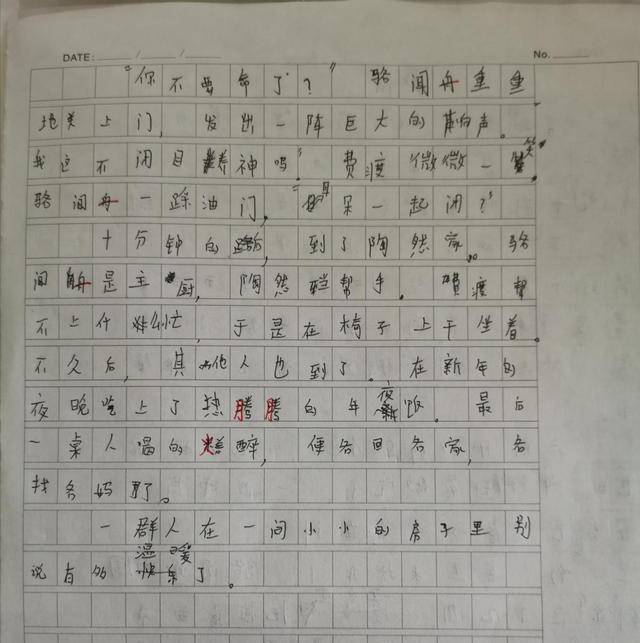 DATE: / / No.
“你不要命了？”骆闻舟重重
地关上门，发出一阵巨大的声响声。
我这不闭目养神吗。”费渡微微一笑，
骆闻舟一踩油门，“ 一起闭？”
十分钟的路后，到了陶然家。骆
闻舟是主厨，陶然 帮手。费渡帮
不上什么忙，于是在椅子上干坐着。
不久后，其他人也到了。在新年的
夜晚吃上了热腾腾的年夜饭。最后
一桌人喝的 醉，便各回各家，各
找各妈了。
一群人在一间小小的房子里别
说有多温暖了。